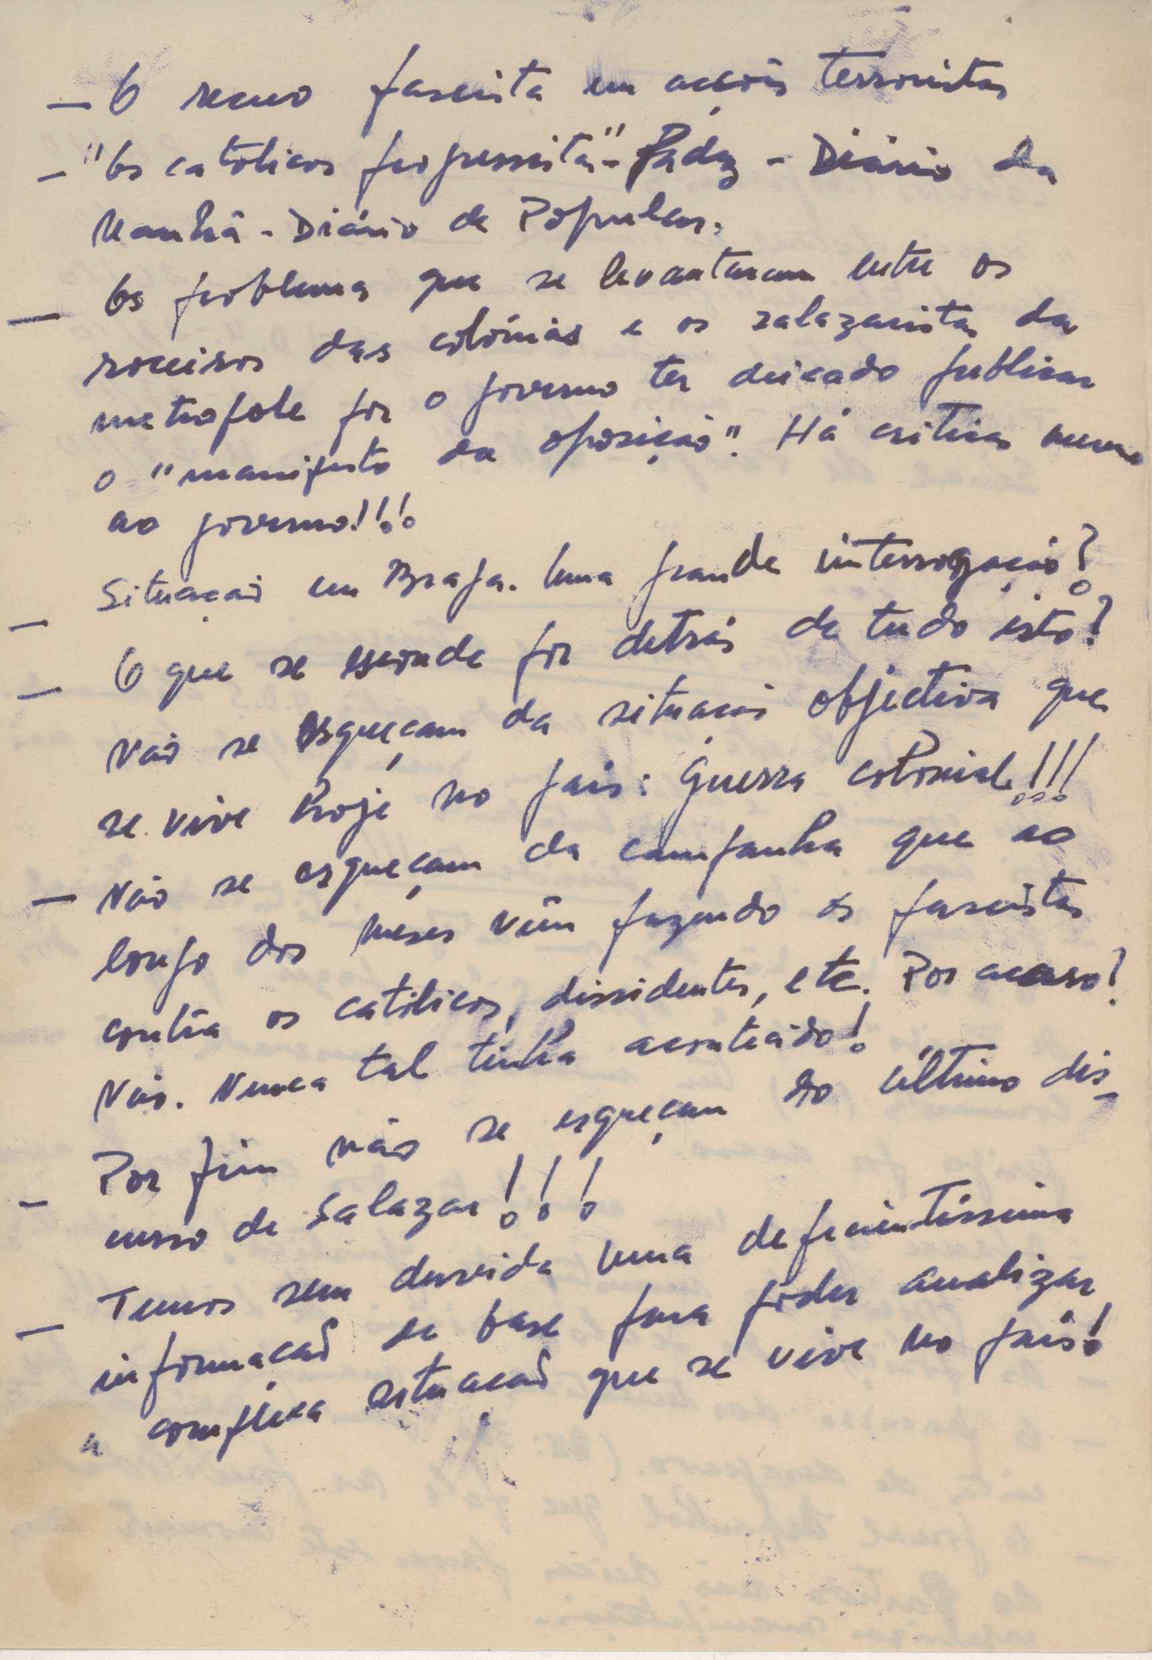 — O recuo fascista em acções terroristas
— "Os católicos progressista" - - Diário da
Manhã - Diário de Popular.
— Os problemas que se levantaram entre os
roceiros das colónias e os salazaristas da
metropole por o governo ter deicado publicar
o "manifesto da oposição". Há criticas mesmo
ao governo!!!
— Situação em Braga. Uma grande interrogação?
— O que se esconde por detrás de tudo isto?
Não se esqueçam da situação objectiva que
se vive hoje no país: Guerra colonial!!!
— Não se esqueçam da campanha que ao
longo dos meses vêm fazendo os fascistas
contra os católicos, dissidentes, etc. Por acaso?
Não. Nunca tal tinha acontecido!
— Por fim não se esqueçam do último dis-
curso de Salazar!!!
— Temos sem duvida uma deficientíssima
informação de base para poder analizar
a complexa situação que se vive no país!